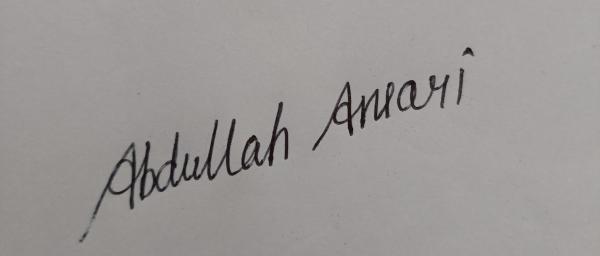 Abdullah Ansari